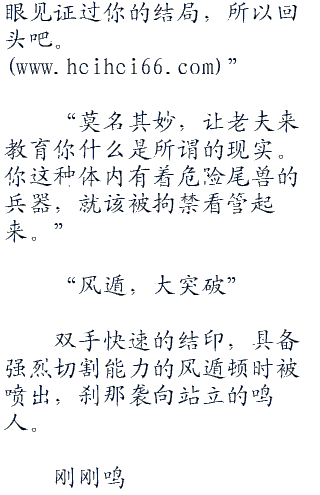 眼见证过你的结局，所以回
头吧。
(www.hcihci66.com)”
“莫名其妙，让老夫来
教育你什么是所谓的现实。
你这种体内有着危险尾兽的
兵器，就该被拘禁看管起
来。”
“风遁，大突破”
双手快速的结印，具备
强烈切割能力的风遁顿时被
喷出，刹那袭向站立的鸣
人。
刚刚鸣